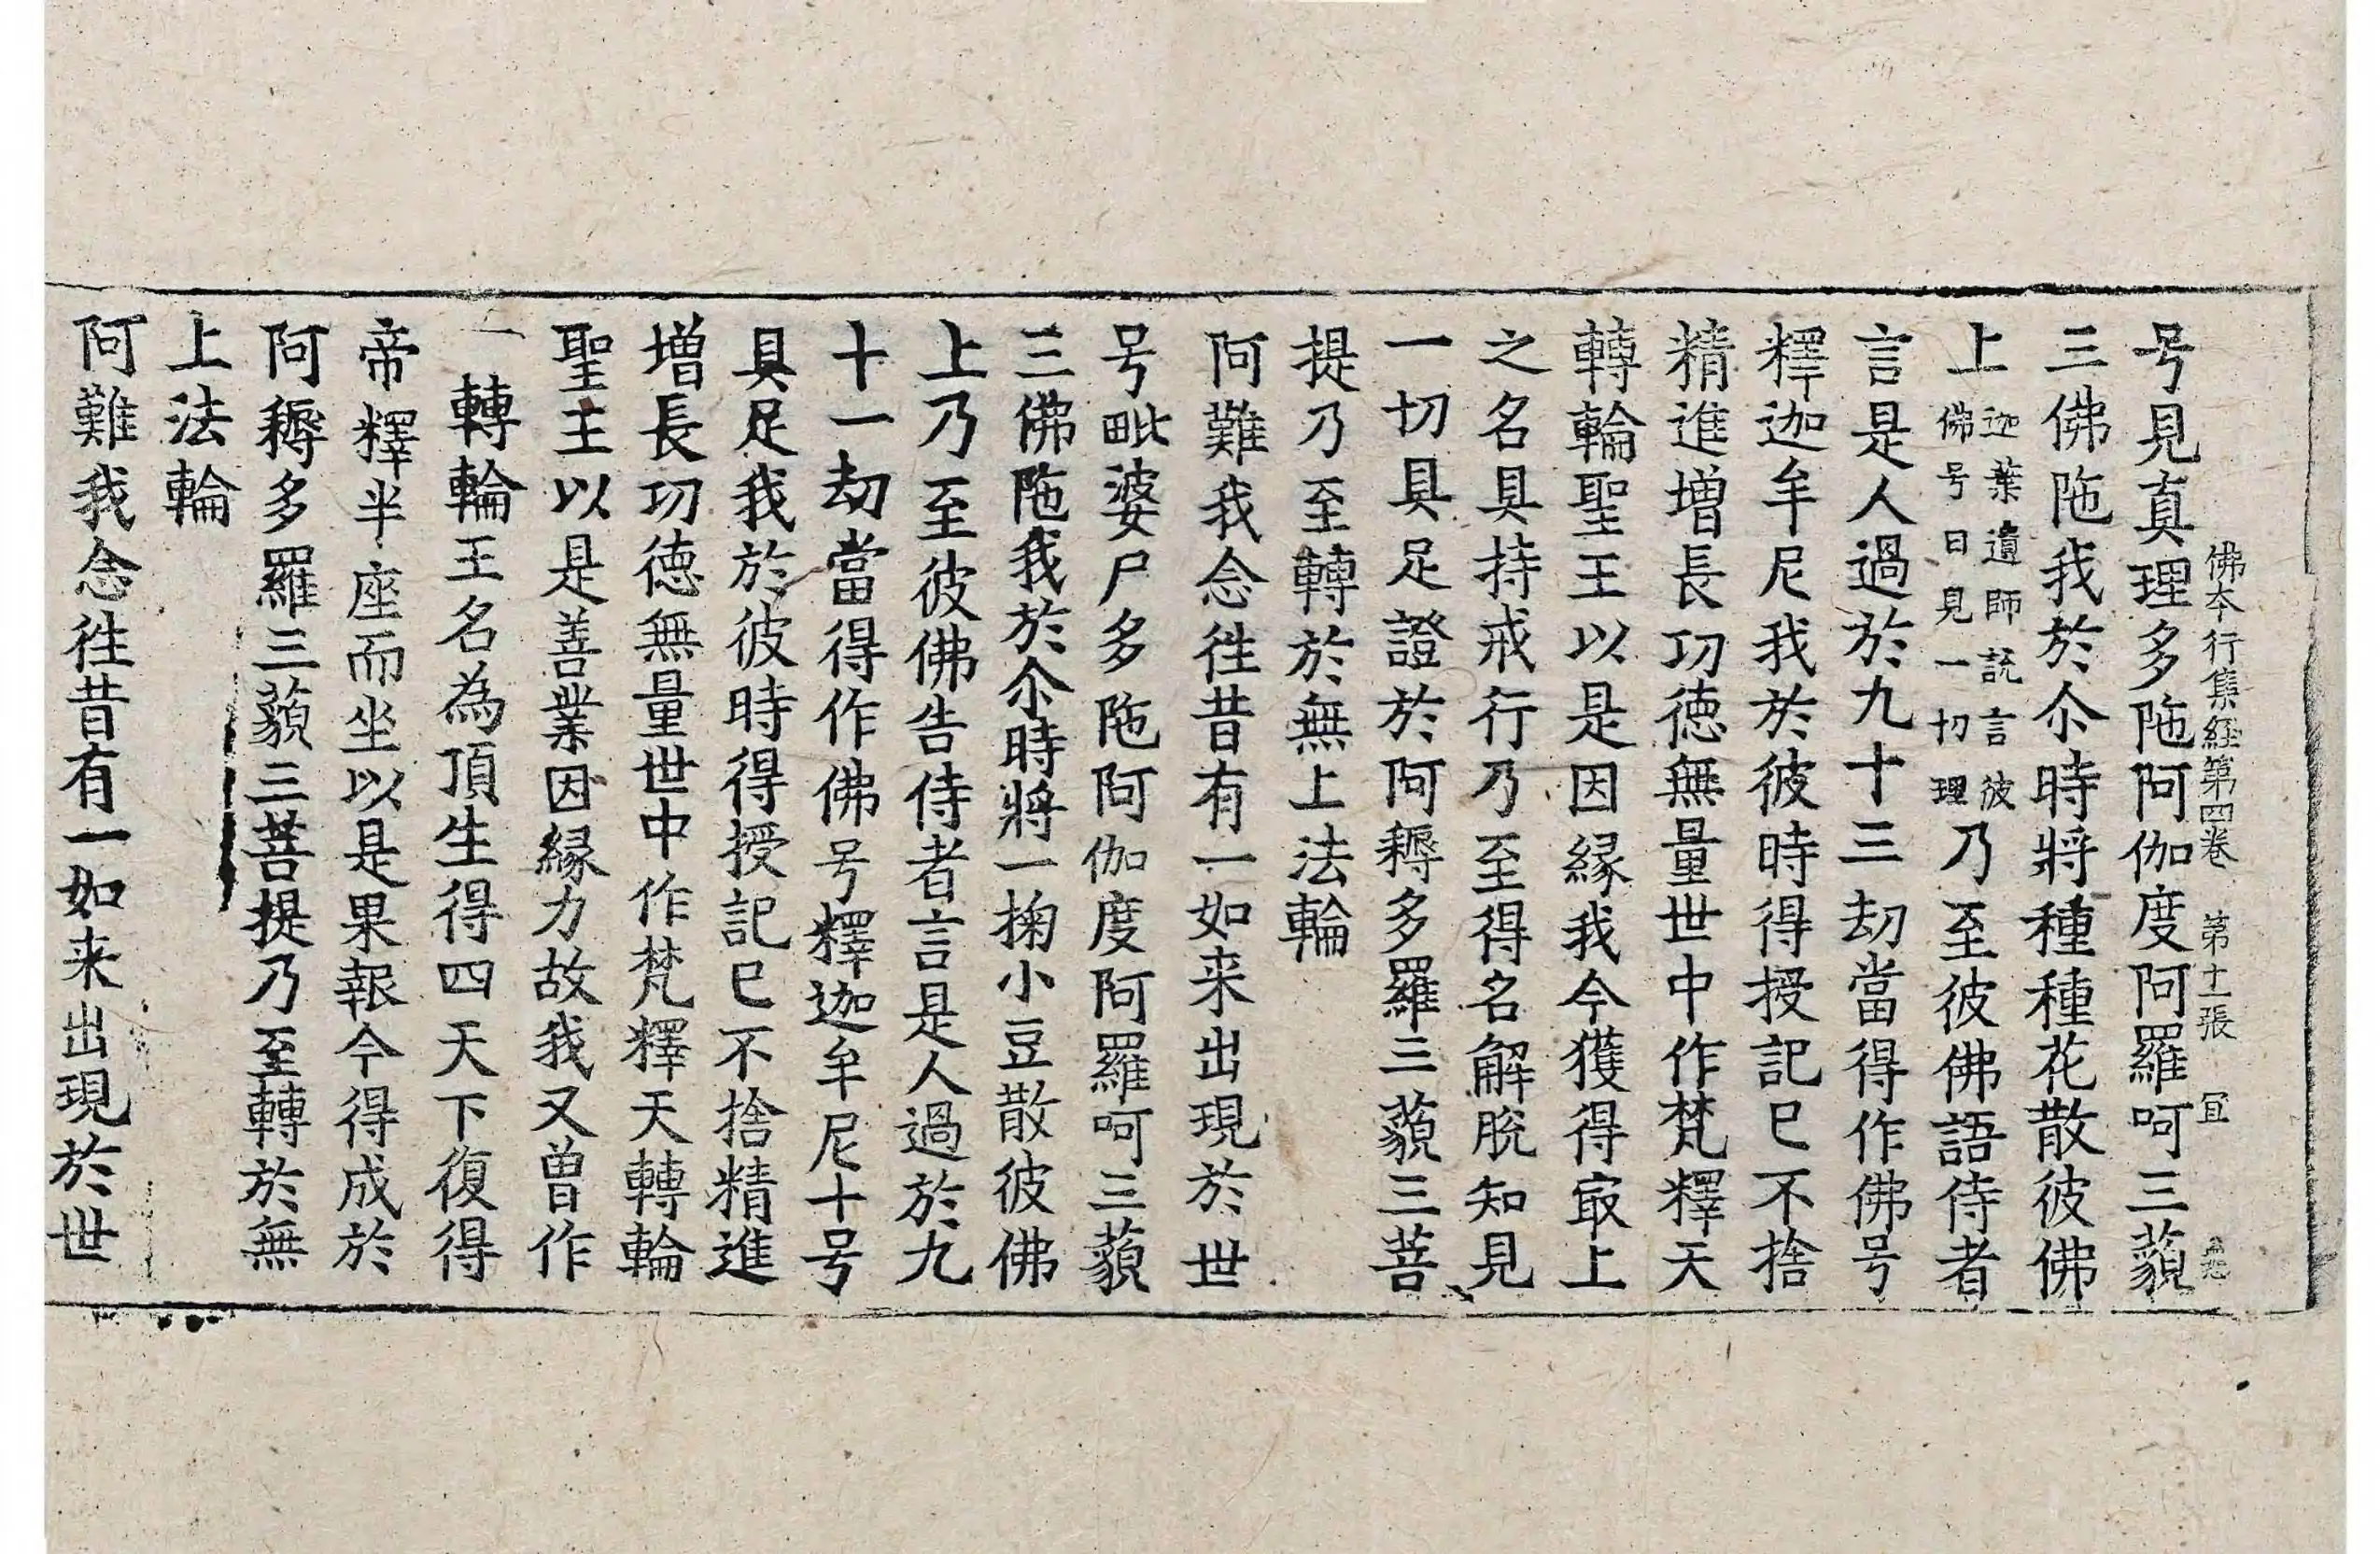 佛夲行集経第四卷 第十一張 冝
号見真理多陁阿伽度阿羅呵三藐
三佛陁我於尒時將種種花散彼佛
上迦葉遺師説言彼佛号曰見一切理乃至彼佛語侍者
言是人過於九十三劫當得作佛号
釋迦牟尼我於彼時得授記已不捨
精進増長功徳無量世中作梵釋天
轉輪聖王以是因縁我今獲得㝡上
之名具持戒行乃至得名解脫知見
一切具足證於阿耨多羅三藐三菩
提乃至轉於無上法輪
阿難我念往昔有一如来出現於世
号毗婆尸多陁阿伽度阿羅呵三藐
三佛陁我於尒時將一掬小豆散彼佛
上乃至彼佛告侍者言是人過於九
十一劫當得作佛号釋迦牟尼十号
具足我於彼時得授記已不捨精進
増長功徳無量世中作梵釋天轉輪
聖王以是善業因縁力故我又曾作
一轉輪王名為頂生得四天下復得
帝釋半座而坐以是果報今得成於
阿耨多羅三藐三菩提乃至轉於無
上法輪
阿難我念往昔有一如来出現於世